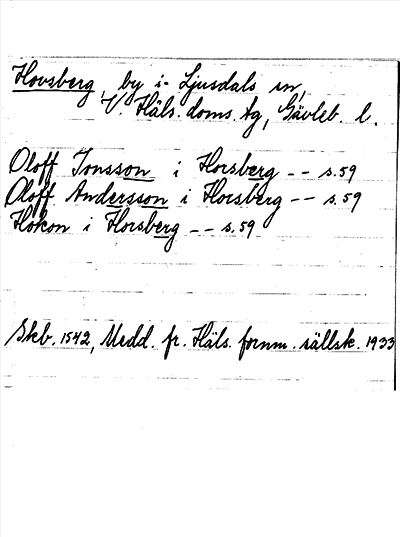 Hovsberg, by i Ljusdals sn,
V. Häls. doms. tg, Gävleb. l.
Oloff Jonsson i Horsberg -- s. 59
Oloff Andersson i Horsberg -- s. 59
Håkon i Horsberg -- s. 59
Skb. 1542, Medd. fr. Häls. fornm. sällsk. 1933